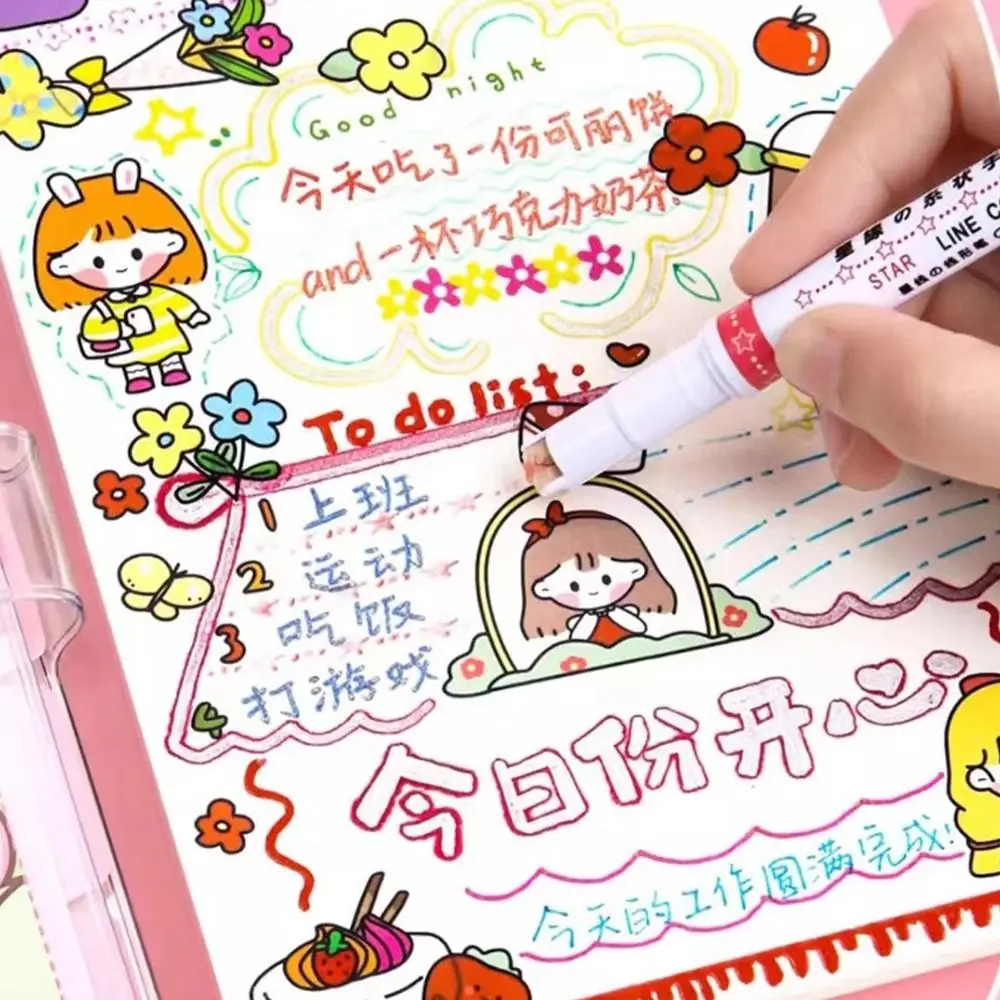 Good night
今天吃了一份可丽饼
and一杯巧克力奶茶
To do list:
1 上班
2 运动
3 吃饭
4 打游戏
今日份开心
今天的工作圆满完成!
STAR
LINE